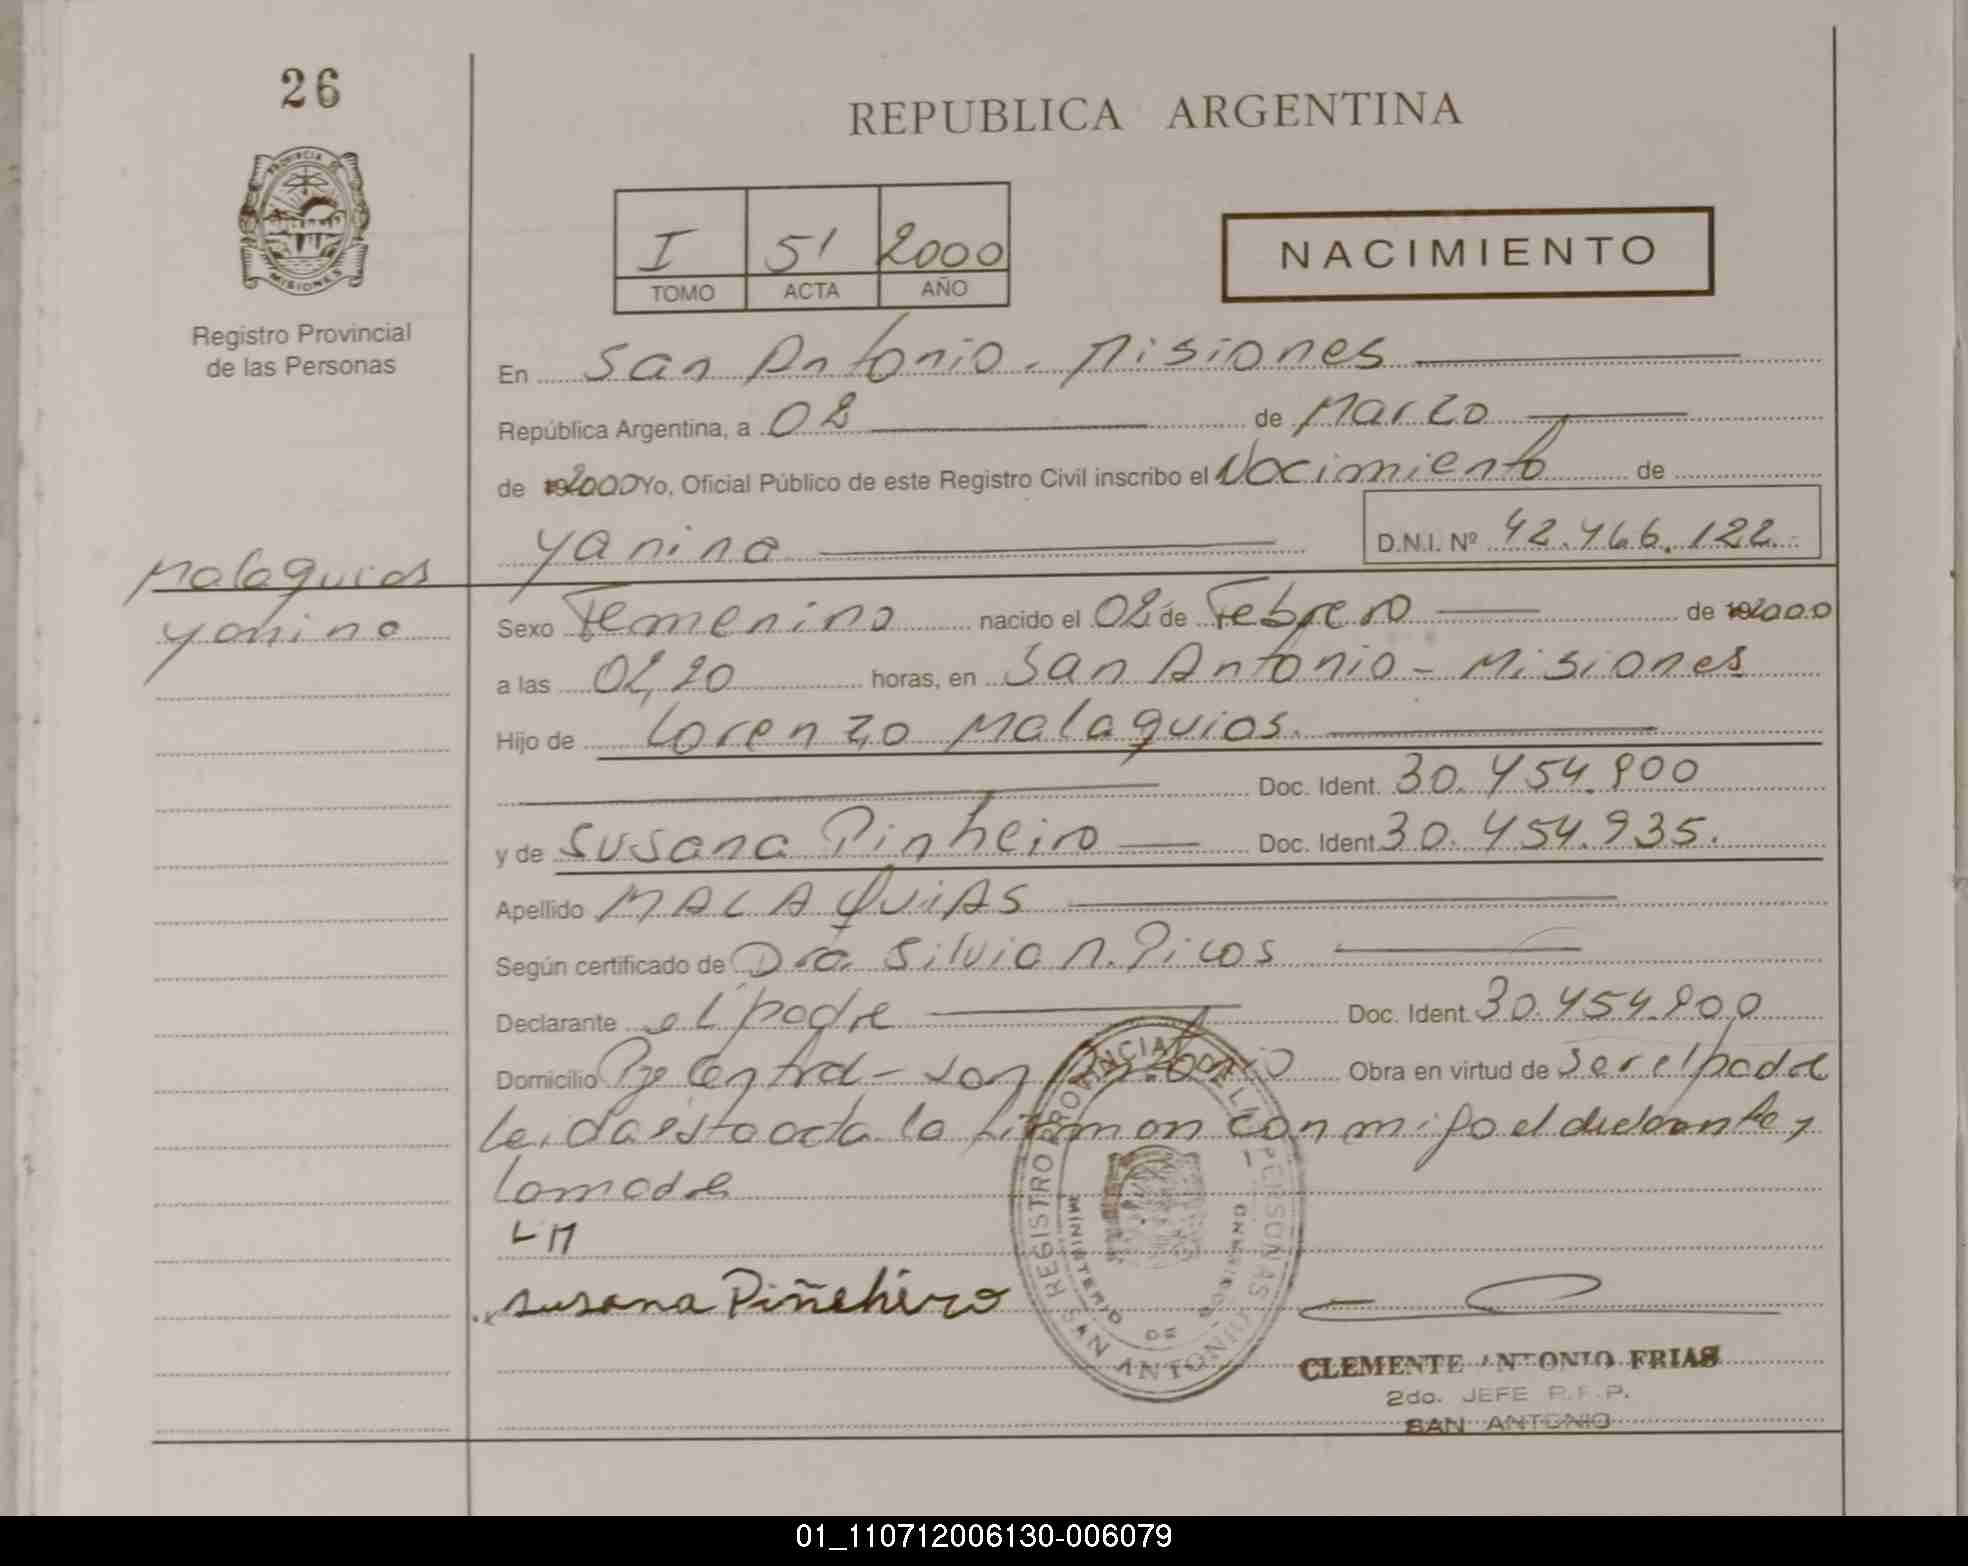 26
REPUBLICA ARGENTINA
PROVINCIA DE MISIONES
I 51 2000
TOMO ACTA AÑO
NACIMIENTO
Registro Provincial
de las Personas
En San Antonio - Misiones
República Argentina, a 02 de Marzo
de 2000 Yo, Oficial Público de este Registro Civil inscribo el Nacimiento de
Yanina D.N.I. Nº 42.466.122
Malaquias
Yanina
Sexo Femenino nacido el 02 de Febrero de 2000
a las 02,20 horas, en San Antonio - Misiones
Hijo de Lorenzo Malaquias.
Doc. Ident. 30.454.900
y de Susana Pinheiro Doc. Ident. 30.454.935.
Apellido MALAQUIAS
Según certificado de Dra. Silvia N. Picos
Declarante el padre Doc. Ident. 30.454.900
Domicilio Central - San Antonio Obra en virtud de ser el padre
Leida esta acta la firman conmigo el declarante y
la madre
LM
Susana Piñehiro
REGISTRO PROVINCIAL DE LAS PERSONAS
MINISTERIO DE GOBIERNO
SAN ANTONIO
CLEMENTE ANTONIO FRIAS
2do. JEFE R.P.P.
SAN ANTONIO
01_110712006130-006079